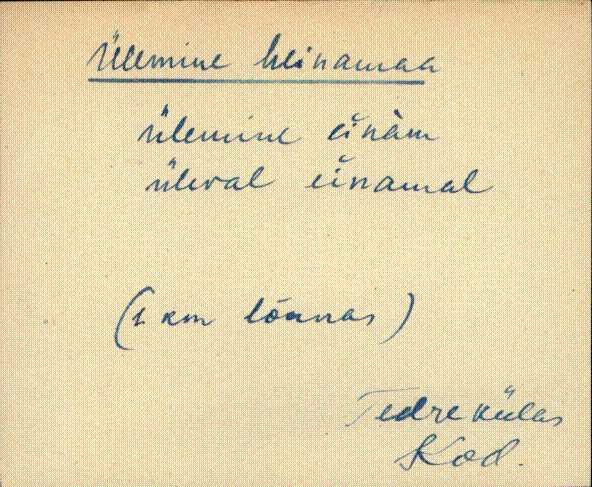 Ülemine heinamaa
ülemine einàm
üleval einamal
(1 km lõunas)
Tedre külas
Kod.